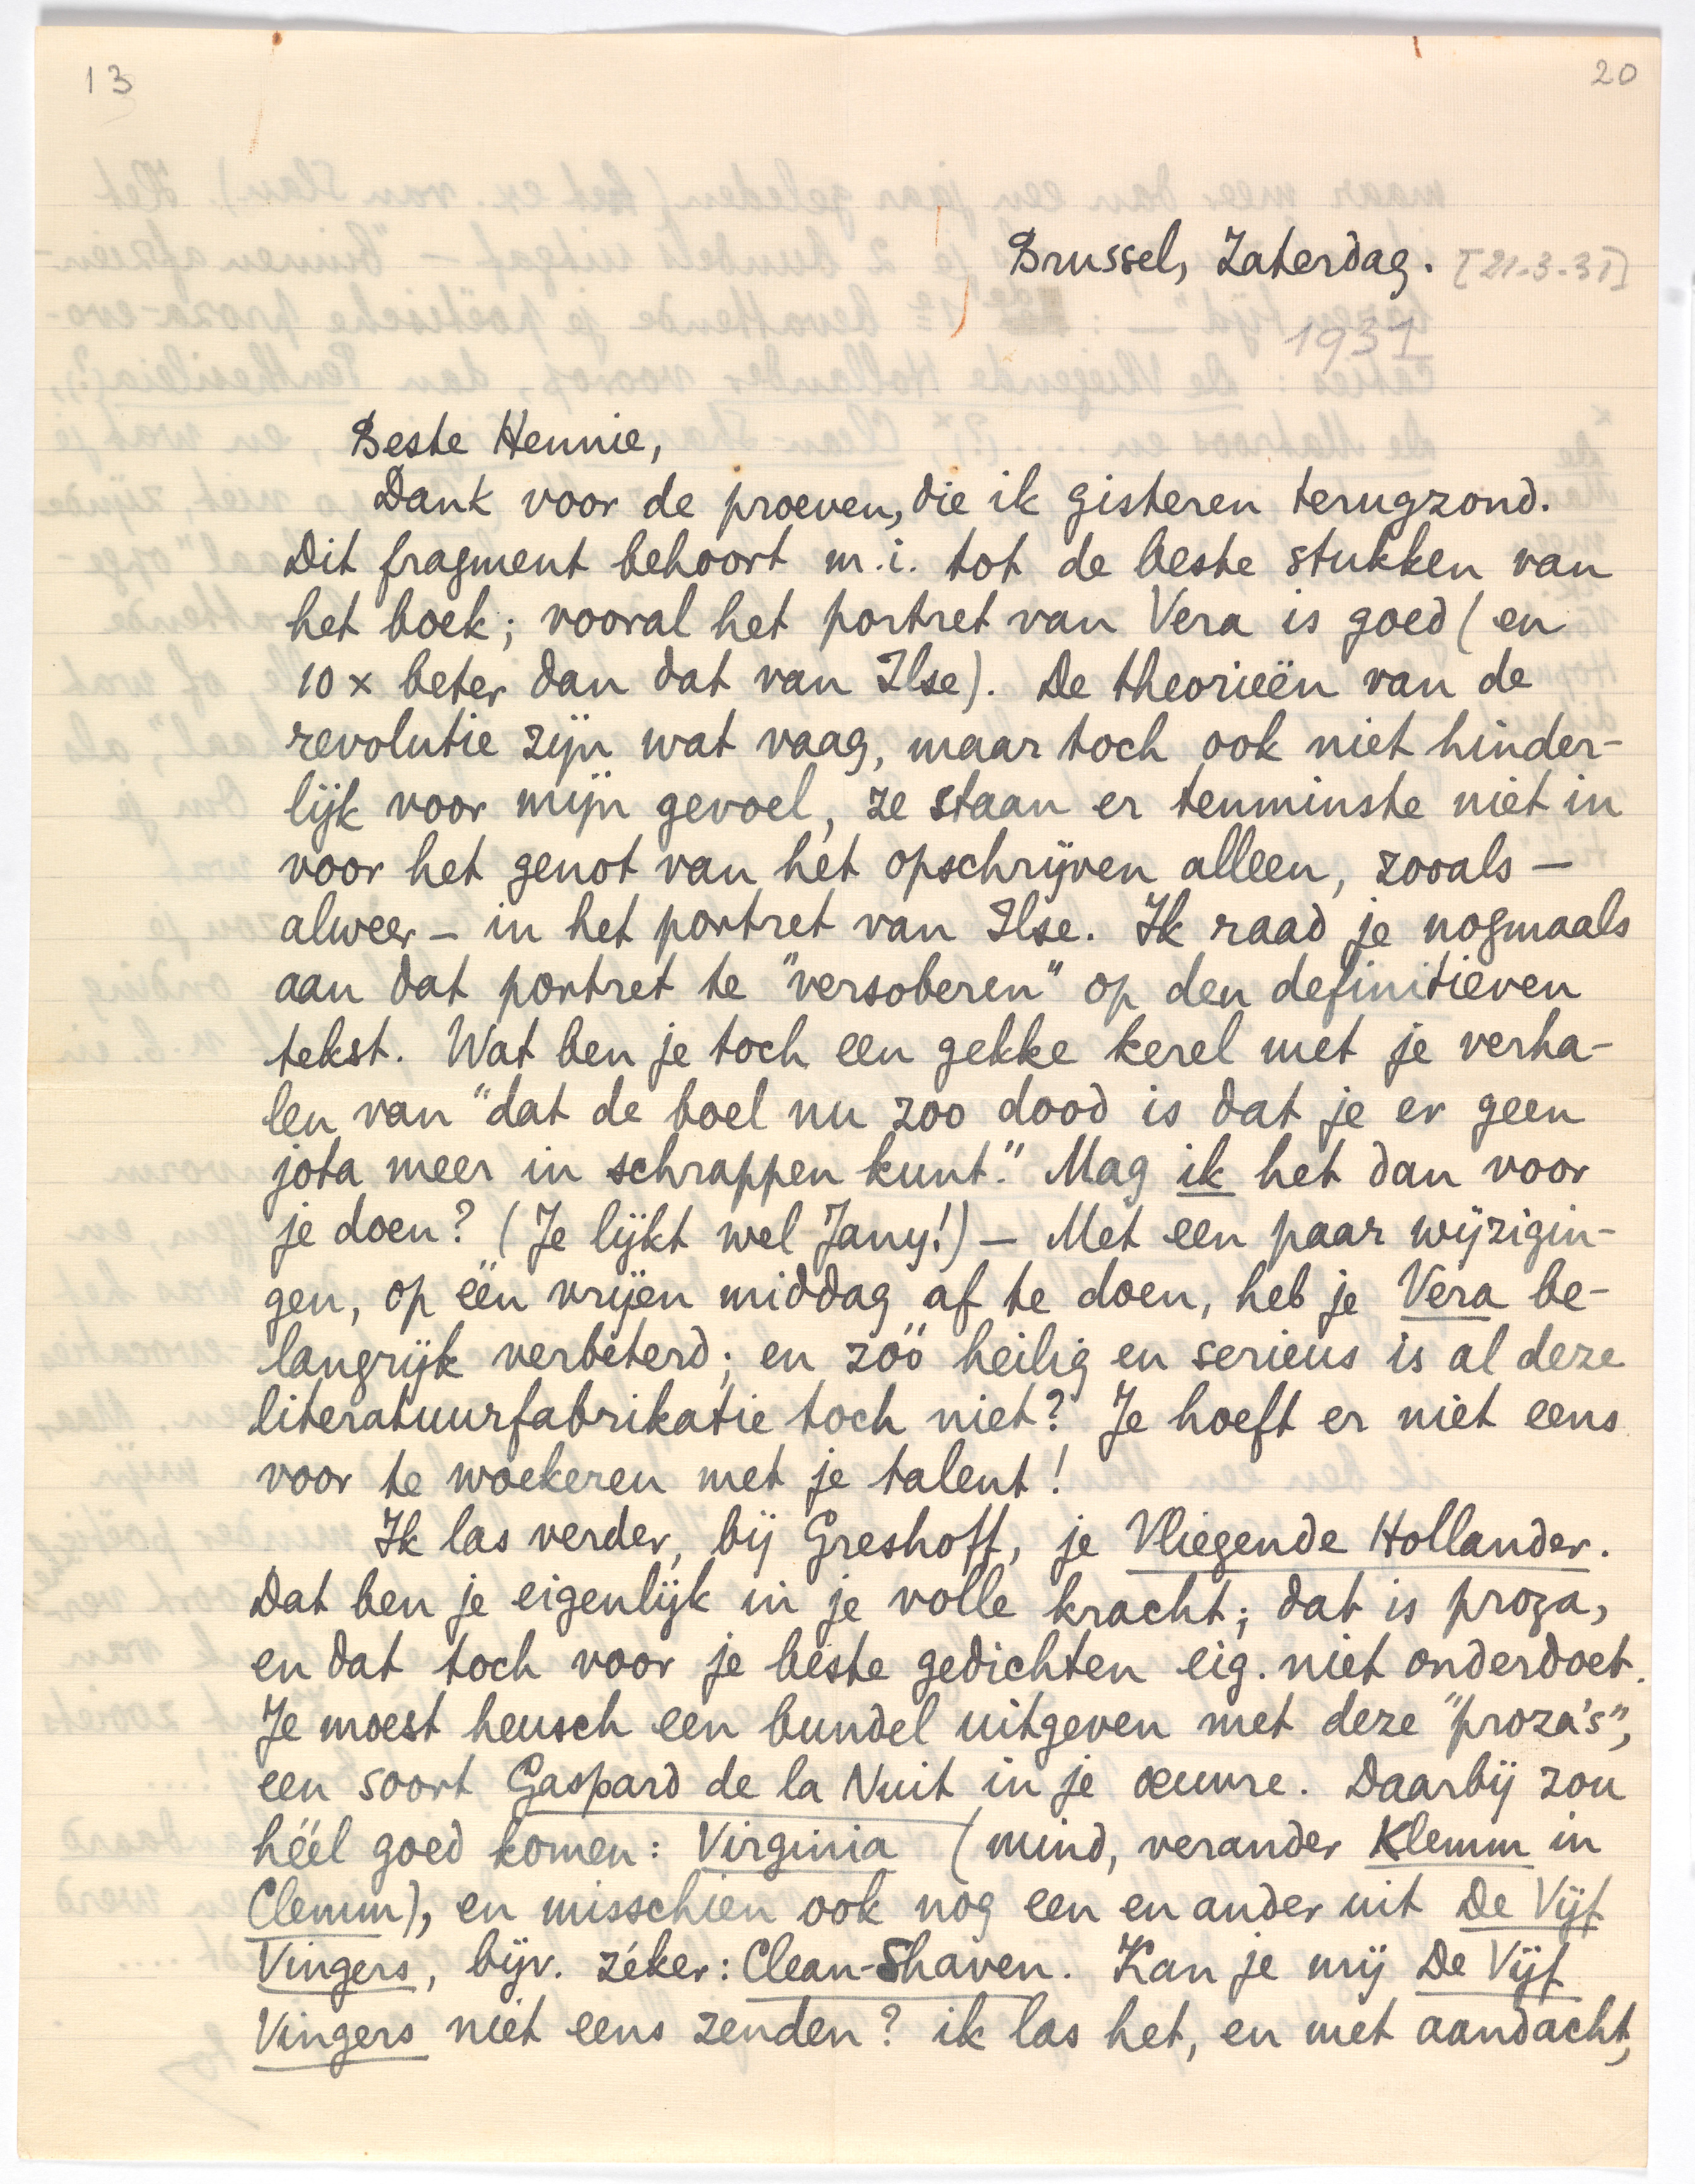 13
20
Brussel, Zaterdag. [21-3-31]
1931
Beste Hennie,
Dank voor de proeven, die ik gisteren terugzond.
Dit fragment behoort m.i. tot de beste stukken van
het boek; vooral het portret van Vera is goed (en
10 x beter dan dat van Ilse). De theorieën van de
revolutie zijn wat vaag, maar toch ook niet hinder-
lijk voor mijn gevoel, ze staan er tenminste niet in
voor het genot van het opschrijven alleen, zooals –
alweer – in het portret van Ilse. Ik raad je nogmaals
aan dat portret te "versoberen" op den definitieven
tekst. Wat ben je toch een gekke kerel met je verha-
len van "dat de boel nu zoo dood is dat je er geen
jota meer in schrappen kunt." Mag ik het dan voor
je doen? (Je lijkt wel Jany!) – Met een paar wijzigin-
gen, op één vrijen middag af te doen, heb je Vera be-
langrijk verbeterd; en zóó heilig en serieus is al deze
literatuurfabrikatie toch niet? Je hoeft er niet eens
voor te woekeren met je talent!
Ik las verder, bij Greshoff, je Vliegende Hollander.
Dat ben je eigenlijk in je volle kracht; dat is proza,
en dat toch voor je beste gedichten eig. niet onderdoet.
Je moest heusch een bundel uitgeven met deze "proza's",
een soort Gaspard de la Nuit in je œuvre. Daarbij zou
héél goed komen: Virginia (mind, verander Klemm in
Clemm), en misschien ook nog een en ander uit De Vijf
Vingers, bijv. zéker: Clean-Shaven. Kan je mij De Vijf
Vingers niet eens zenden? ik las het, en met aandacht,